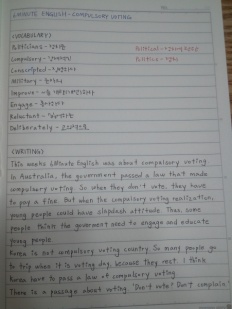 6MINUTE ENGLISH - COMPULSORY VOTING
<VOCABULARY>
Politicians - 정치인
Political - 정치적인
Compulsory - 강제적인
Politics - 정치
Conscripted -
Military -
Improve -
Engage -
Reluctant - 꺼리는
Deliberately - 고의적으로
<WRITING>
This weeks 6Minute English was about compulsory voting.
In Australia, the government passed a law that made
compulsory voting. So when they don't vote, they have
to pay a fine. But when the compulsory voting reallization,
young people could have slapdash attitude. Then, some
people think the government need to engage and educate
young people.
Korea is not compulsory voting country. So many people go
to trip when it is voting day, because they rest. I think
Korea have to pass a law of compulsory voting.
There is a passage about voting. 'Don't vote? Don't complain'